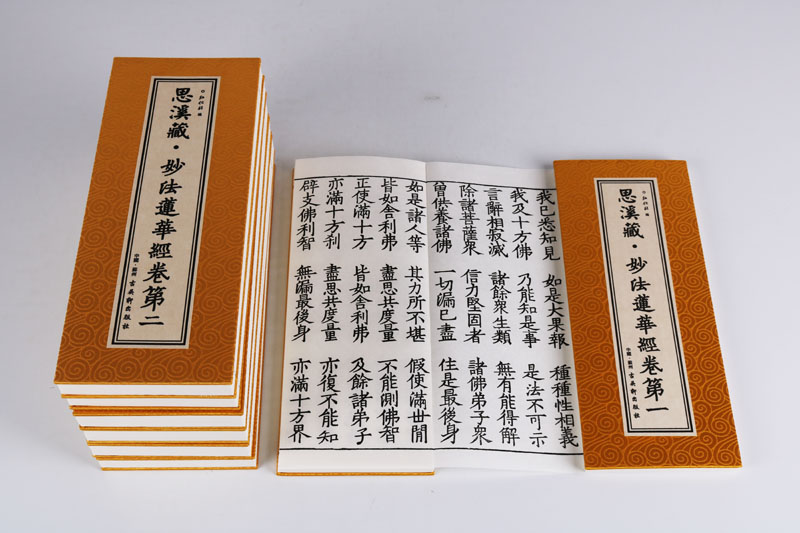 思溪藏·妙法蓮華經卷第二
中國·蘇州 古吳軒出版社
思溪藏·妙法蓮華經卷第一
中國·蘇州 古吳軒出版社
我已悉知見 如是大果報 種種性相義
我及十方佛 乃能知是事 是法不可示
言辭相寂滅 諸餘衆生類 無有能得解
除諸菩薩衆 信力堅固者 諸佛弟子衆
曾供養諸佛 一切漏已盡 住是最後身
如是諸人等 其力所不堪 假使滿世閒
皆如舍利弗 盡思共度量 不能測佛智
正使滿十方 皆如舍利弗 及餘諸弟子
亦滿十方刹 盡思共度量 亦復不能知
辟支佛利智 無漏最後身 亦滿十方界